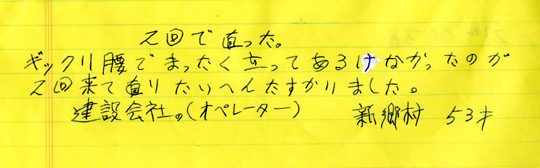 2回で直った。
ギックリ腰でまったく立ってあるけなかったのが
2回来て直りたいへんたすかりました。
建設会社。(オペレーター) 新郷村 53才